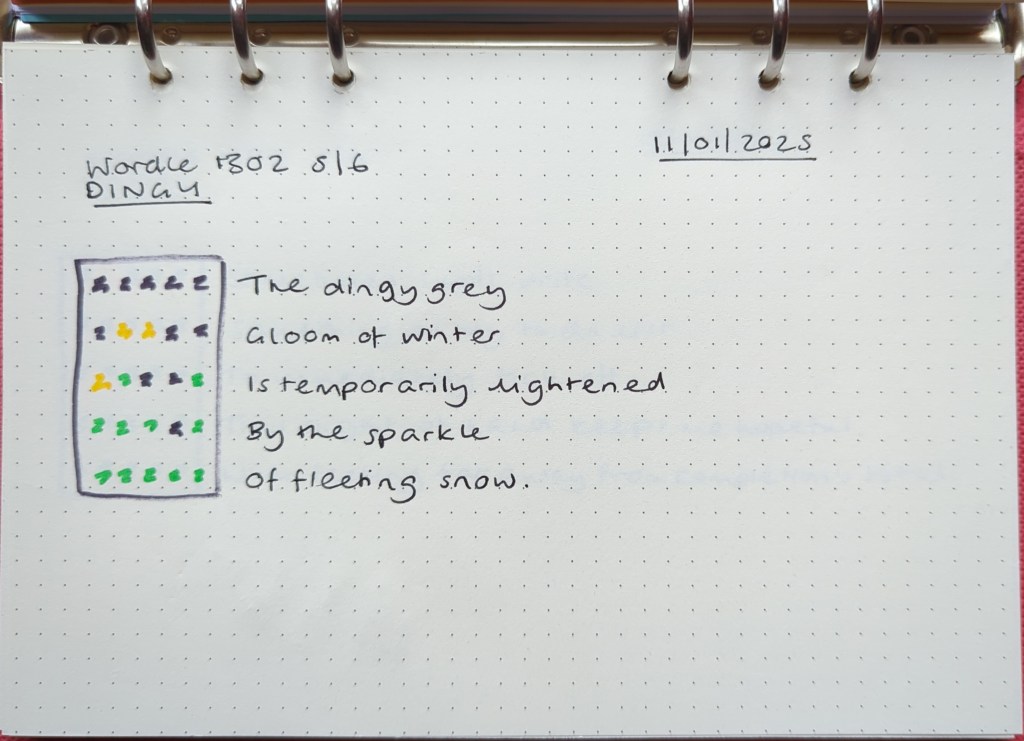 11/01/2025
Wordle 1302 5/6
DINGY
The dingy grey
Gloom of winter
Is temporarily lightened
By the sparkle
Of fleeting snow.